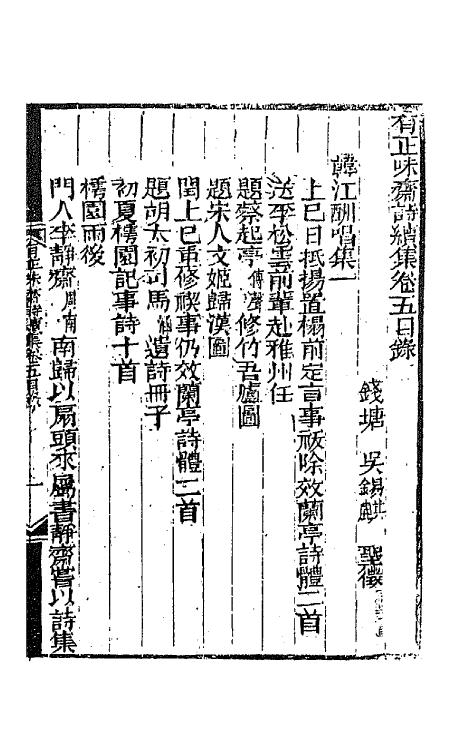 有正味齋詩續集卷五目錄
錢塘 吳錫麒 聖徵
韓江酬唱集一
上巳日抵揚置榻前定百事祓除效蘭亭詩體二首
送李松雲前輩赴雅州任
題蔡起亭修竹吾廬圖
題宋人文姬歸漢圖
閏上巳重修禊事仍效蘭亭詩體二首
題胡太初司馬遺詩冊子
初夏樗園記事詩十首
樗園雨後
門人李靜齋周南南歸以扇頭求屬書靜齋嘗以詩集
有正味齋詩續集卷五目錄
一